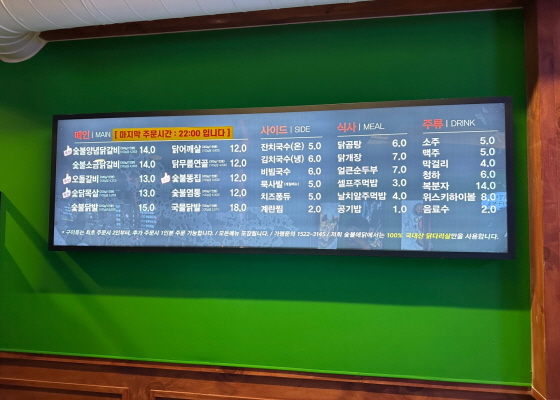 메인 | MAIN [ 마지막 주문시간 : 22:00 입니다 ]
숯불양념닭갈비 14.0
숯불소금닭갈비 14.0
오돌갈비 13.0
숯닭목살 13.0
숯불닭발 15.0
닭어깨살 12.0
닭무릎연골 12.0
숯불똥집 12.0
숯불염통 12.0
국물닭발 18.0
사이드 | SIDE
잔치국수(온) 5.0
김치국수(냉) 6.0
비빔국수 6.0
묵사발 5.0
치즈퐁듀 5.0
계란찜 2.0
식사 | MEAL
닭곰탕 6.0
닭개장 7.0
얼큰순두부 7.0
셀프주먹밥 3.0
날치알주먹밥 4.0
공기밥 1.0
주류 | DRINK
소주 5.0
맥주 5.0
막걸리 4.0
청하 6.0
복분자 14.0
위스키하이볼 8.0
음료수 2.0
* 구이류는 최초 주문시 2인부터, 추가 주문시 1인분 주문 가능합니다. / 모든메뉴 포장됩니다. / 가맹문의 1522-3165 / 저희 숯불에닭에서는 100% 국내산 닭다리살만을 사용합니다.